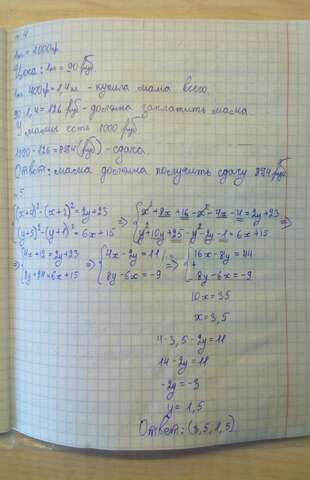 №4
1кг = 1000гр
Цена: 1кг = 90 руб
1кг 400гр = 1,4кг - купила мама всего.
90·1,4 = 126 руб - должна заплатить мама.
У мамы есть 1000 руб.
1000-126=874(руб) - сдача.
Ответ: мама должна получить сдачу 874 руб.
№5
{(x+4)²-(x+2)²=2y+23 => {x²+8x+16-x²-4x-4=2y+23
(y+5)²-(y+1)²=6x+15 y²+10y+25-y²-2y-1=6x+15
=> {4x+12=2y+23 => {4x-2y=11 => {16x-8y=44
8y+24=6x+15 8y-6x=-9 + -8y-6x=-9
10x=35
x=3,5
4·3,5-2y=11
14-2y=11
-2y=-3
y=1,5
Ответ: (3,5, 1,5)